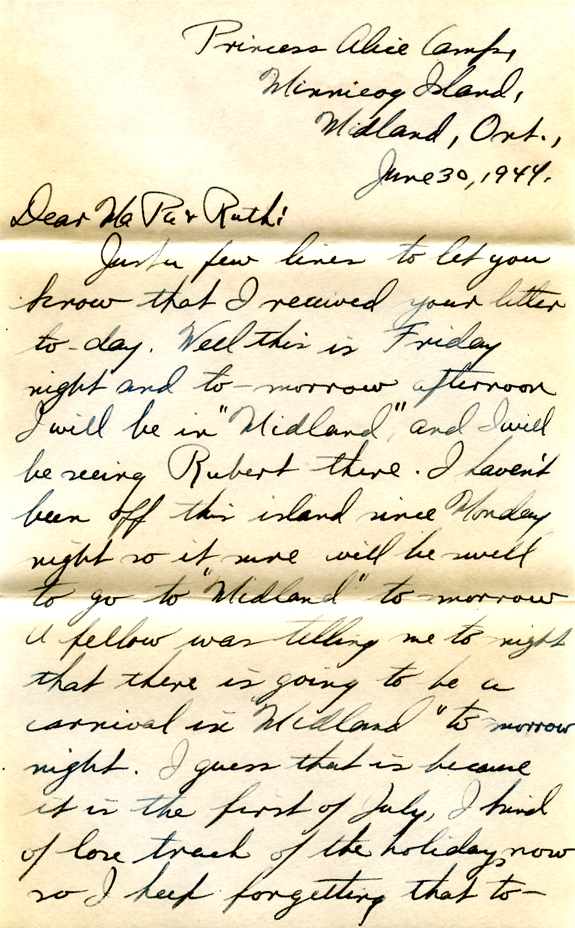 Princess Alice Camp,
Minnicog Island,
Midland, Ont.,
June 30, 1944.
Dear Ma Pa & Ruth:
Just a few lines to let you
know that I received your letter
to-day. Well this is Friday
night and to-morrow afternoon
I will be in "Midland", and I will
be seeing Robert there. I haven't
been off this island since Monday
night so it sure will be swell
to go to "Midland" to morrow
A fellow was telling me to night
that there is going to be a
carnival in "Midland" to morrow
night. I guess that is because
it is the first of July, I kind
of lose track of the holidays now
so I keep forgetting that to-